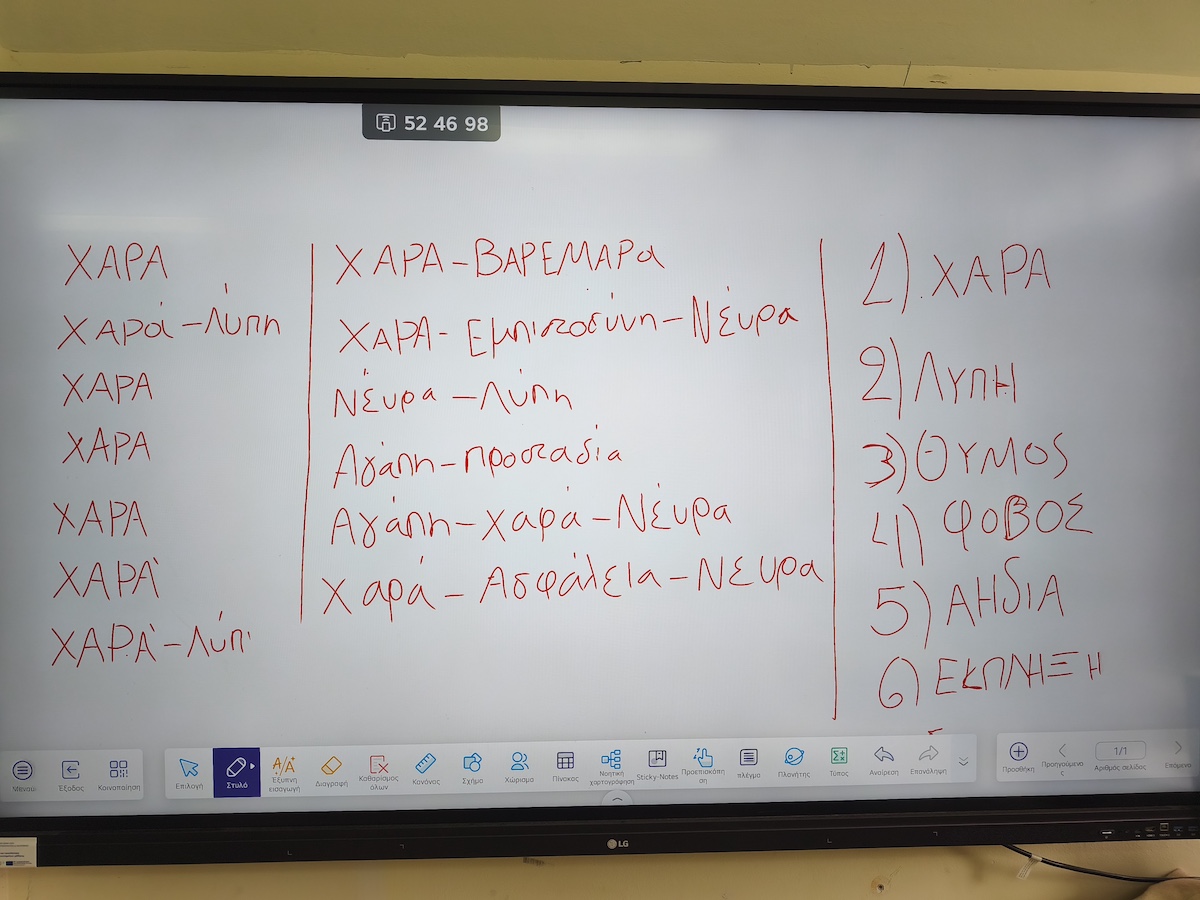 52 46 98
ΧΑΡΑ
Χαρά-Λύπη
ΧΑΡΑ
ΧΑΡΑ
ΧΑΡΑ
ΧΑΡΑ
ΧΑΡΑ-Λύπ
ΧΑΡΑ-ΒΑΡΕΜΑΡα
ΧαΡΑ-Εμπιστοσύνη-Νέυρα
Νέυρα-Λύπη
Αγάπη-προστασία
Αγάπη-χαρά-Νέυρα
Χαρά-Ασφάλεια-Νευρα
1) ΧΑΡΑ
2) ΛΥΠΗ
3) ΘΥΜΟΣ
4) ΦΟΒΟΣ
5) ΑΗδΙΑ
6) ΕΚΠΛΗΞΗ
Μενού
Έξοδος
Κοινοποίηση
Επιλογή
Στυλό
Έξυπνη εισαγωγή
Διαγραφή
Καθαρισμός όλων
Κανόνας
Σχήμα
Χώρισμα
Πίνακας
Νοητική χαρτογράφηση
Sticky-Notes
Προεπισκόπηση
πλέγμα
Πλανήτης
Τύπος
Αναίρεση
Επανάληψη
Προσθήκη
Προηγούμενος
1/1
Αριθμός σελίδας
Επόμενο
LG